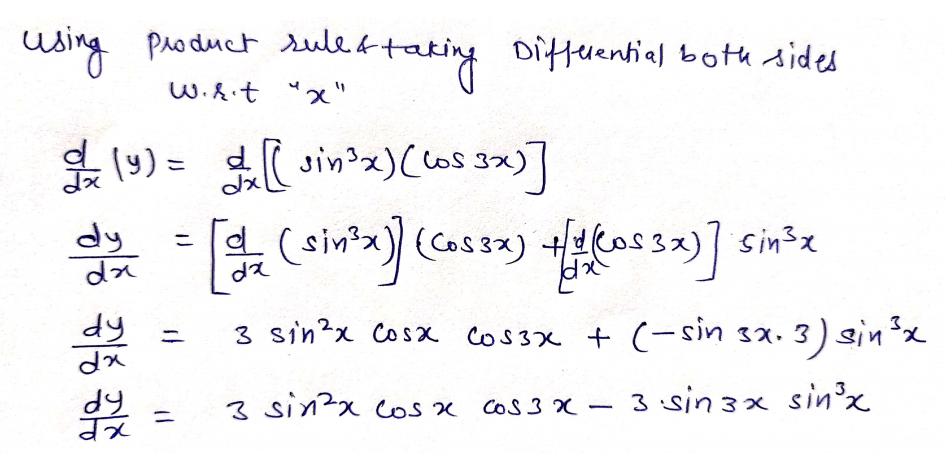 Using product rule & taking Differential both sides
w.r.t "x"
d/dx (y) = d/dx [(sin³x)(cos 3x)]
dy/dx = [d/dx (sin³x)] (cos3x) + [d/dx (cos 3x)] sin³x
dy/dx = 3 sin²x cosx cos3x + (-sin 3x. 3) sin³x
dy/dx = 3 sin²x cos x cos3x - 3 sin3x sin³x